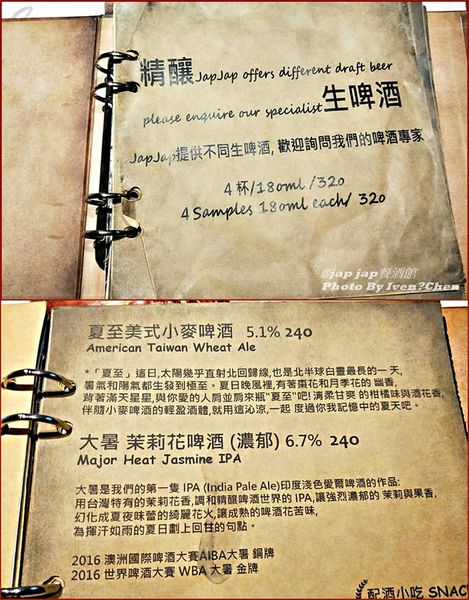 精釀 JapJap offers different draft beer
please enquire our specialist 生啤酒
JapJap提供不同生啤酒, 歡迎詢問我們的啤酒專家
4杯/180ml /320
4 Samples 180ml each/ 320
@jap jap餐酒館
Photo By Iven?Chen
夏至美式小麥啤酒 5.1% 240
American Taiwan Wheat Ale
*「夏至」這日,太陽幾乎直射北回歸線,也是北半球白晝最長的一天,
暑氣和陽氣都生發到極至。夏日晚風裡,有著棗花和月季花的幽香,
背著滿天星星,與你愛的人肩並肩來瓶"夏至"吧! 清柔甘爽 的柑橘味與酒花香,
伴隨小麥啤酒的輕盈酒體,就用這沁涼,一起 度過你我記憶中的夏天吧。
大暑 茉莉花啤酒 (濃郁) 6.7% 240
Major Heat Jasmine IPA
大暑是我們的第一隻 IPA (India Pale Ale)印度淺色愛爾啤酒的作品:
用台灣特有的茉莉花香,調和精釀啤酒世界的 IPA,讓強烈濃郁的 茉莉與果香,
幻化成夏夜味蕾的綺麗花火,讓成熟的啤酒花苦味,
為揮汗如雨的夏日劃上回甘的句點。
2016 澳洲國際啤酒大賽AIBA大暑 銅牌
2016 世界啤酒大賽 WBA 大暑 金牌
配酒小吃 SNAC